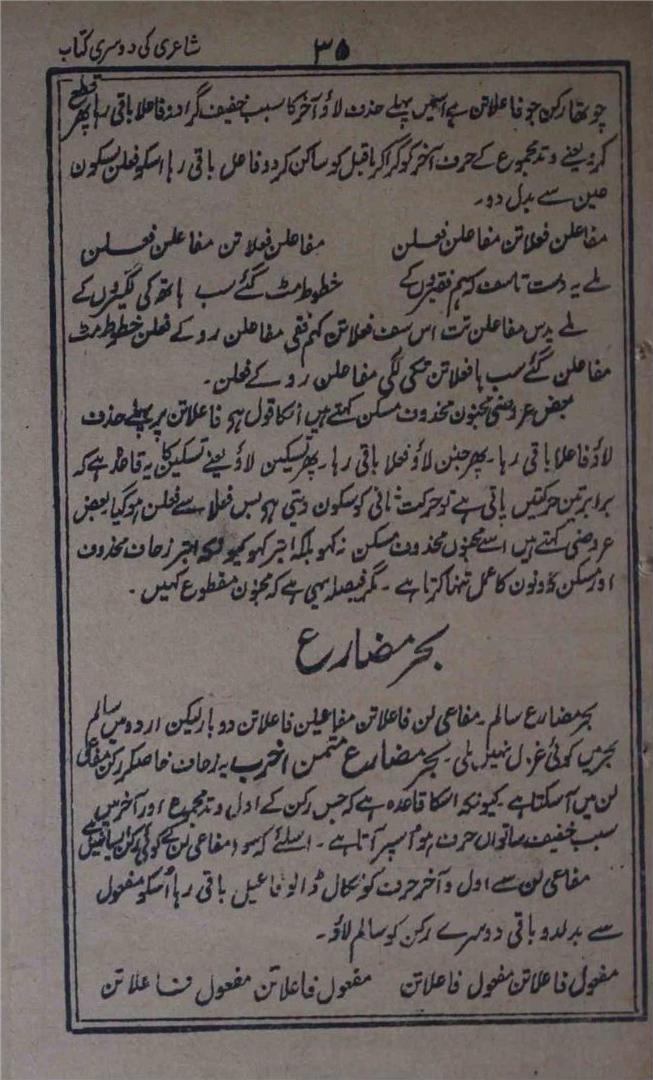 شاعری کی دوسری کتاب
۳۵
چوتھا رکن جو فاعلاتن ہے اسمیں پہلے حذف لاؤ آخر کا سبب خفیف گرا دو فاعلا باقی رہا پھر قطع
کرو یعنے وتد مجموع کے حرف آخر کو گرا کر ماقبل کو ساکن کر دو فاعل باقی رہا اسکو فعلن بسکون
عین سے بدل دو۔
مفاعلن فعلاتن مفاعلن فعلن مفاعلن فعلاتن مفاعلن فعلن
ملے یہ دست تاسف کہ ہم فقیروں کے خطوط مٹ گئے سب ہاتھ کی لکیروں کے
ملے یدس مفاعلن تت اسف فعلاتن کہم فقی مفاعلن رو کے فعلن خطوط مٹ
مفاعلن گئے سب ہا فعلاتن تکی لکی مفاعلن رو کے فعلن۔
بعض عروضی مخبون محذوف مسکن کہتے ہیں انکا قول ہی فاعلاتن پر پہلے حذف
لاؤ فاعلا باقی رہا۔ پھر خبن لاؤ فعلا باقی رہا۔ پھر تسکین لاؤ یعنے تسکین کا یہ قاعدہ ہے کہ
برابر تین حرکتیں پاتی ہے تو حرکت ثانی کو سکون دیتی ہی بس فعلا سے فعلن ہو گیا بعض
عروضی کہتے ہیں اسے مخبون محذوف مسکن نہ کہو بلکہ ابتر کہو کیونکہ ابتر زحاف محذوف
اور مسکن دونوں کا عمل تنہا کرتا ہے۔ مگر فیصلہ یہی ہے کہ مخبون مقطوع کہیں۔
بحر مضارع
بحر مضارع سالم۔ مفاعی لن فاعلاتن مفاعیلن فاعلاتن دو بار لیکن اردو میں سالم
بحر میں کوئی غزل نہیں ملی۔ بحر مضارع مثمن اخرب یہ زحاف خاصکر رکن مفاعی
لن میں آسکتا ہے۔ کیونکہ اسکا قاعدہ ہے کہ جس رکن کے اول وتد مجموع اور آخر میں
سبب خفیف ساتواں حرف ہو اسپر آتا ہے۔ اسلئے کہ سوا مفاعی لن کے کوئی رکن ایسا نہیں ہے
مفاعی لن سے اول و آخر حرف کو نکال ڈالو فاعیل باقی رہا اسکو مفعول
سے بدلدو باقی دوسرے رکن کو سالم لاؤ۔
مفعول فاعلاتن مفعول فاعلاتن مفعول فاعلاتن مفعول فاعلاتن